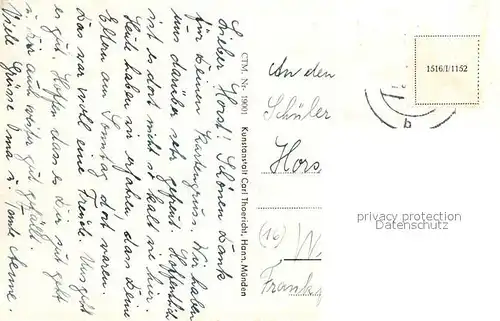 Lieber Horst! Schönen Dank
für Deinen Kartengruss. Wir haben
uns darüber sehr gefreut. Hoffentlich
ist es dort nicht so kalt wie hier.
Heute haben wir erfahren dass Deine
Eltern am Sonntag dort waren.
Das war wohl eine Freude. Uns geht
es gut. Hoffen dass es Dir gut geht
u. Dir auch weiter gut gefällt.
Viele Grüsse Oma u. Tante Aenne.
CTM. Nr. 19001 Kunstanstalt Carl Thoericht, Hann. Münden
1516/I/1152
An den
Schüler
Hors
(16)
Frank
privacy protection
Datenschutz